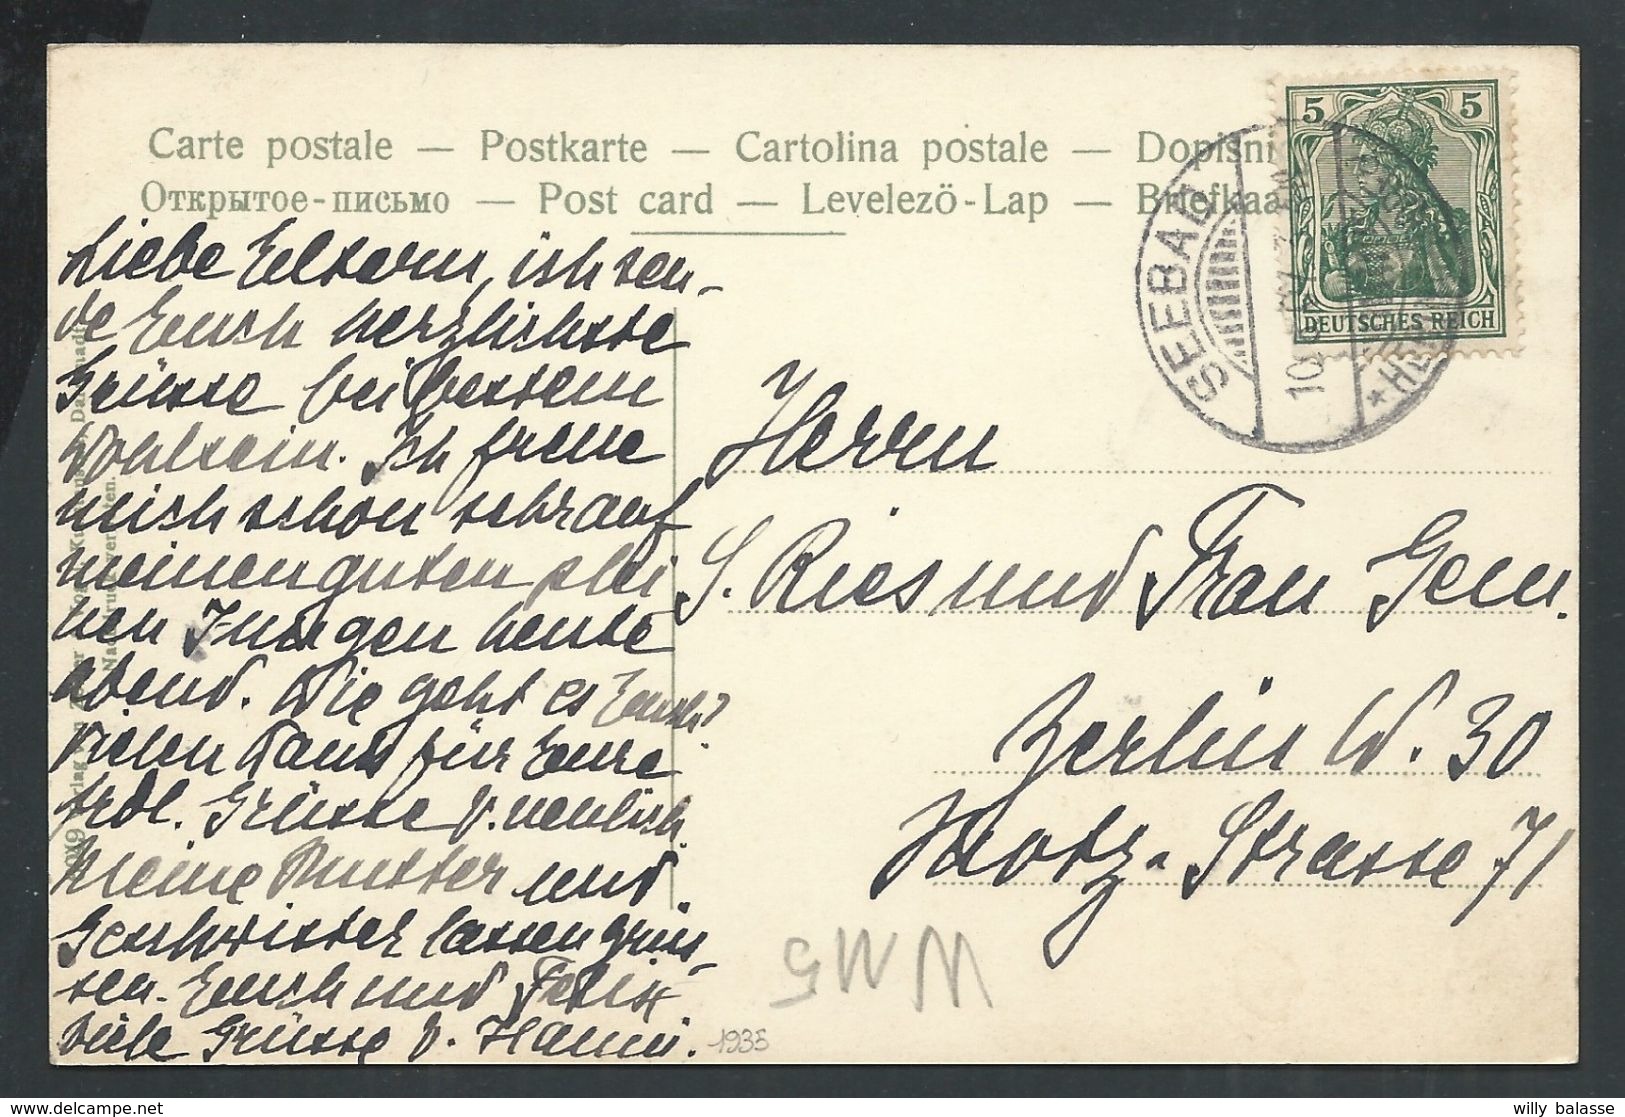 Carte postale — Postkarte — Cartolina postale — Dopisni
Открытое-письмо — Post card — Levelező-Lap — Briefkaa
5 5
DEUTSCHES REICH
SEEBAD
10
Liebe Eltern, ich sen-
de Euch herzlichste
Grüsse bei bestem
Wohlsein. Ich freue
mich schon sehr auf
meinen guten klei
nen Jungen heute
abend. Wie geht es Euch?
Vielen Dank für Eure
frdl. Grüsse v. neulich.
Meine Mutter und
Geschwister lassen grüs-
sen. Euch und Felix
viele Grüsse v. Hanni.
Herrn
S. Ries und Frau Gem.
Berlin W. 30
Motz-Strasse 71
1935
willy balasse